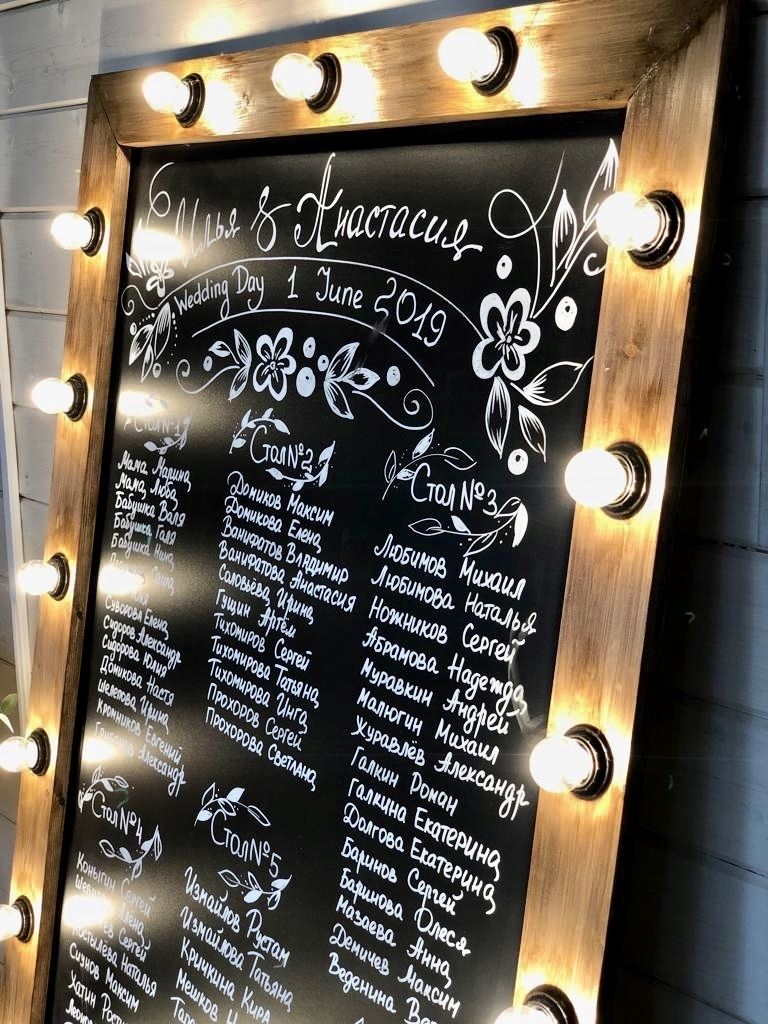 Илья & Анастасия
Wedding Day 1 June 2019
Стол №1
Мама Марина
Мама Люба
Бабушка Валя
Бабушка Галя
Бабушка Нина
Суворова Елена
Сидоров Александр
Сидорова Юлия
Домикова Настя
Шелепова Ирина
Кромников Евгений
Александр
Стол №2
Домиков Максим
Домикова Елена
Ванифатов Владимир
Ванифатова Анастасия
Соловьёва Ирина
Гущин Артём
Тихомиров Сергей
Тихомирова Татьяна
Тихомирова Инга
Прохоров Сергей
Прохорова Светлана
Стол №3
Любимов Михаил
Любимова Наталья
Ножников Сергей
Абрамова Надежда
Муравкин Андрей
Малюгин Михаил
Журавлёв Александр
Галкин Роман
Галкина Екатерина
Долгова Екатерина
Баринов Сергей
Баринова Олеся
Мазаева Анна
Демичев Максим
Веденина
Стол №4
Коныгин Сергей
Сергей
Костылёва Наталья
Сиунов Максим
Хапин
Стол №5
Измайлов Рустам
Измайлова Татьяна
Кричкина Кира
Мешков